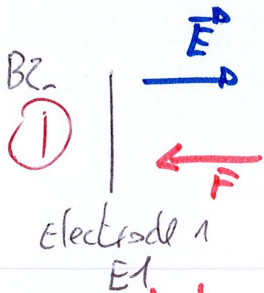 E
B2-
1
F
Electrode 1
E1